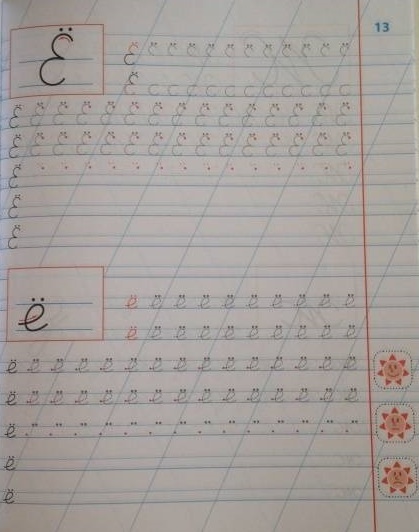 13
Ё
Ё Ё Ё Ё Ё Ё Ё Ё Ё Ё Ё Ё
Ё
Ё Ё Ё Ё Ё Ё Ё Ё Ё Ё Ё Ё Ё Ё Ё
Ё Ё Ё Ё Ё Ё Ё Ё Ё Ё Ё Ё Ё Ё Ё
Ё
Ё
Ё
ё
ё ё ё ё ё ё ё ё ё ё
ё ё ё ё ё ё ё ё ё ё
ё ё ё ё ё ё ё ё ё ё ё ё ё ё ё
ё ё ё ё ё ё ё ё ё ё ё ё ё ё ё
ё
ё
ё